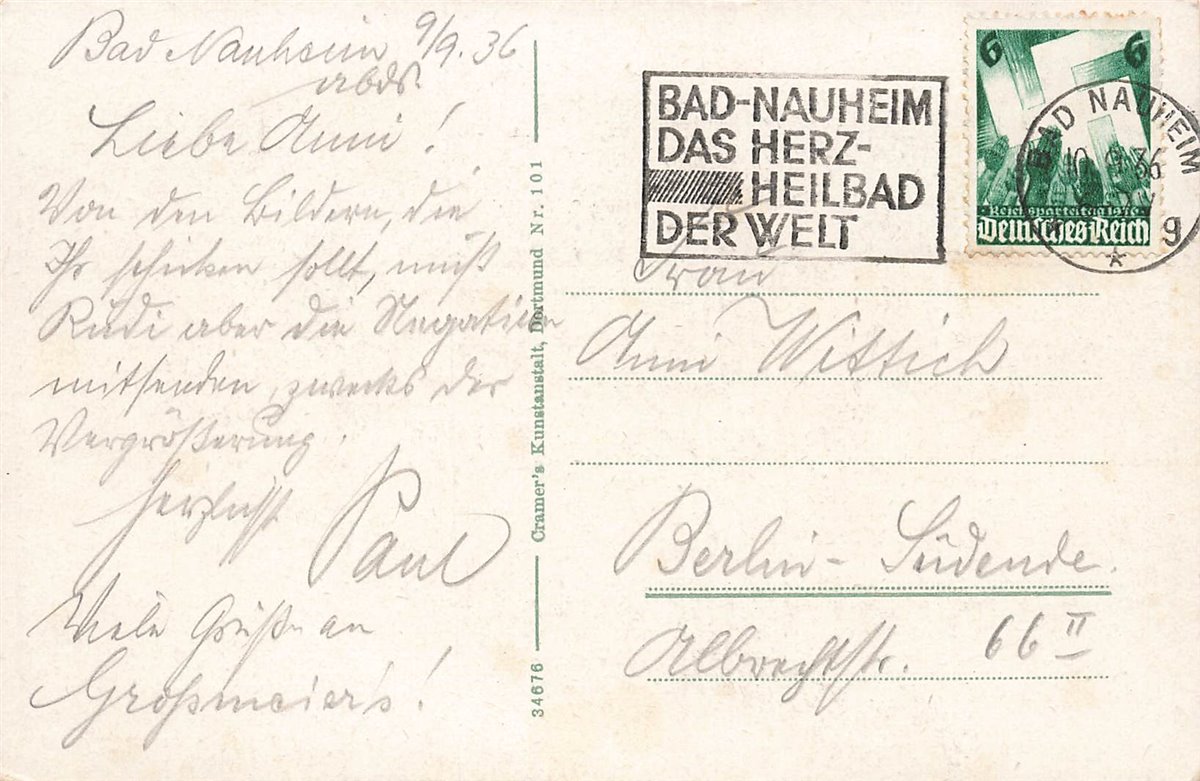 Bad Nauheim 9/9.36
abds.
Liebe Anni!
Von den Bildern, die
Ihr schicken sollt, muß
Rudi aber die Negative
mitsenden, zwecks der
Vergrößerung.
Herzlichst
Paul
Viele Grüße an
Großmeier's!
34676 — Cramer's Kunstanstalt, Dortmund Nr. 101
BAD-NAUHEIM
DAS HERZ-
HEILBAD
DER WELT
6 6
Reichsparteitag 1936
Deutsches Reich
BAD NAUHEIM
10.9.36
g
Frau
Anni Wittich
Berlin-Südende.
Albrechtstr. 66 II